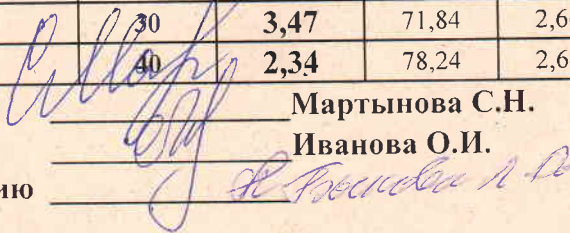 30 3,47 71,84 2,6
40 2,34 78,24 2,6
Мартынова С.Н.
Иванова О.И.
ию